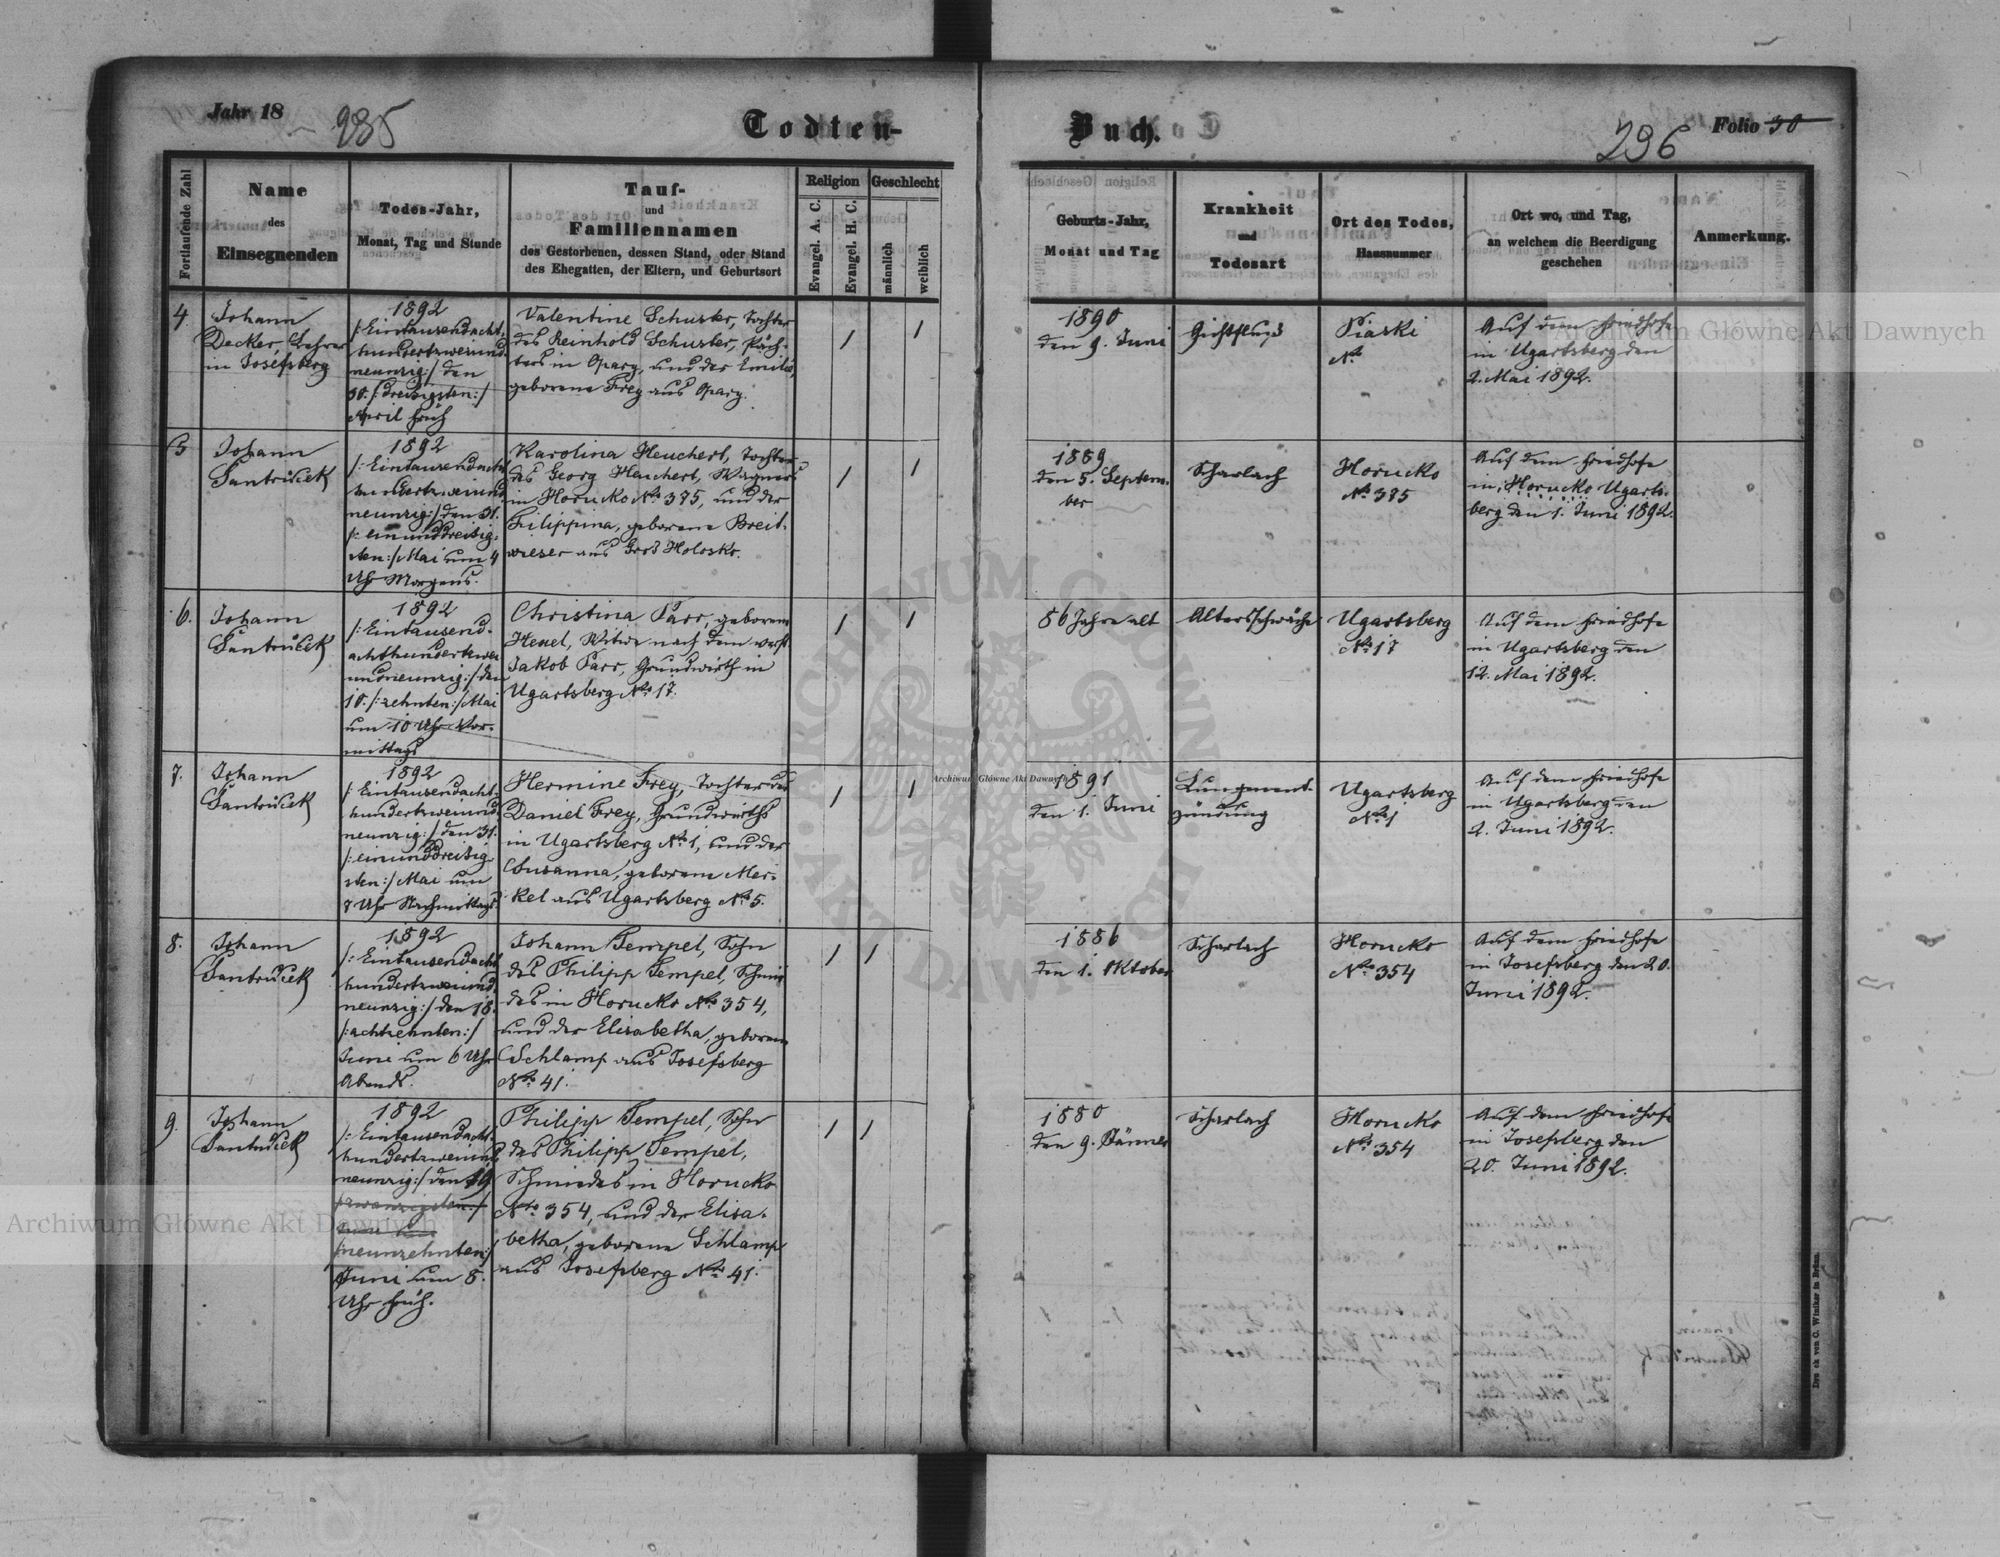 Jahr 18
235
Todten-
Buch.
296
Folio 30
Fortlaufende Zahl
Name
des
Einsegnenden
Todes-Jahr,
Monat, Tag und Stunde
Tauf-
und
Familiennamen
des Gestorbenen, dessen Stand, oder Stand
des Ehegatten, der Eltern, und Geburtsort
Religion
Evangel. A. C.
Evangel. H. C.
Geschlecht
männlich
weiblich
Geburts-Jahr,
Monat und Tag
Krankheit
und
Todesart
Ort des Todes,
Hausnummer
Ort wo, und Tag,
an welchem die Beerdigung
geschehen
Anmerkung.
4.
Johann
Decker, Lehrer
in Josefsberg
1892
/:Eintausendacht-
hundertzweiund-
neunzig:/ den
30. /:dreißigsten:/
April früh
Valentine Schuster, Tochter
des Reinhold Schuster, Päch-
ters in Opary, und der Emilie,
geborene Frey aus Opary.
/
/
1890
den 9. Juni
Piaski
No
Auf dem Friedhofe
in Ugartsberg den
2. Mai 1892.
5
Johann
Santrůček
1892
/:Eintausendacht-
hundertzweiund-
neunzig:/ den 31.
/:einunddreißig-
sten:/ Mai um 4
Uhr Morgens.
Karolina Heuchert, Tochter
des Georg Heuchert, Wagners
in Horucko No 375, und der
Filippina, geborene Breit-
wieser aus Groß Holosko.
/
/
1889
den 5. Septem-
ber
Scharlach
Horucko
No 375
Auf dem Friedhofe
in Horucko Ugarts-
berg den 1. Juni 1892.
6.
Johann
Santrůček
1892
/:Eintausend-
achthundertzwei-
undneunzig:/ den
10. /:zehnten:/ Mai
um 10 Uhr Vor-
mittags
Christina Parr, geborene
Heuel, Witwe nach dem verst.
Jakob Parr, Grundwirth in
Ugartsberg No 17.
/
/
86 Jahre alt
Altersschwäche
Ugartsberg
No 17
Auf dem Friedhofe
in Ugartsberg den
12. Mai 1892.
7.
Johann
Santrůček
1892
/:Eintausendacht-
hundertzweiund-
neunzig:/ den 31.
/:einunddreißig-
sten:/ Mai um
7 Uhr Nachmittags
Hermine Frey, Tochter des
Daniel Frey, Grundwirths
in Ugartsberg No 1, und der
Susanna, geborene Mer-
kel aus Ugartsberg No 5.
/
/
1891
den 1. Juni
Lungenent-
zündung
Ugartsberg
No 1
Auf dem Friedhofe
in Ugartsberg den
2. Juni 1892.
8.
Johann
Santrůček
1892
/:Eintausendacht-
hundertzweiund-
neunzig:/ den 18.
/:achtzehnten:/
Juni um 6 Uhr
Abends.
Johann Tempel, Sohn
des Philipp Tempel, Schmie-
des in Horucko No 354,
und der Elisabetha, geborene
Schlamp aus Josefsberg
No 41.
/
/
1886
den 1. Oktober
Scharlach
Horucko
No 354
Auf dem Friedhofe
in Josefsberg den 20.
Juni 1892.
9.
Johann
Santrůček
1892
/:Eintausendacht-
hundertzweiund-
neunzig:/ den 19
/:zwanzigsten:/
/:neunzehnten:/
Juni um 8.
Uhr früh.
Philipp Tempel, Sohn
des Philipp Tempel,
Schmiedes in Horucko
No 354, und der Elisa-
betha, geborene Schlamp
aus Josefsberg No 41.
/
/
1880
den 9. Jänner
Scharlach
Horucko
No 354
Auf dem Friedhofe
in Josefsberg den
20. Juni 1892.
Druck von C. Winiker in Brünn.
Archiwum Główne Akt Dawnych
Archiwum Główne Akt Dawnych
Archiwum Główne Akt Dawnych
ARCHIWUM GŁÓWNE AKT DAWNYCH